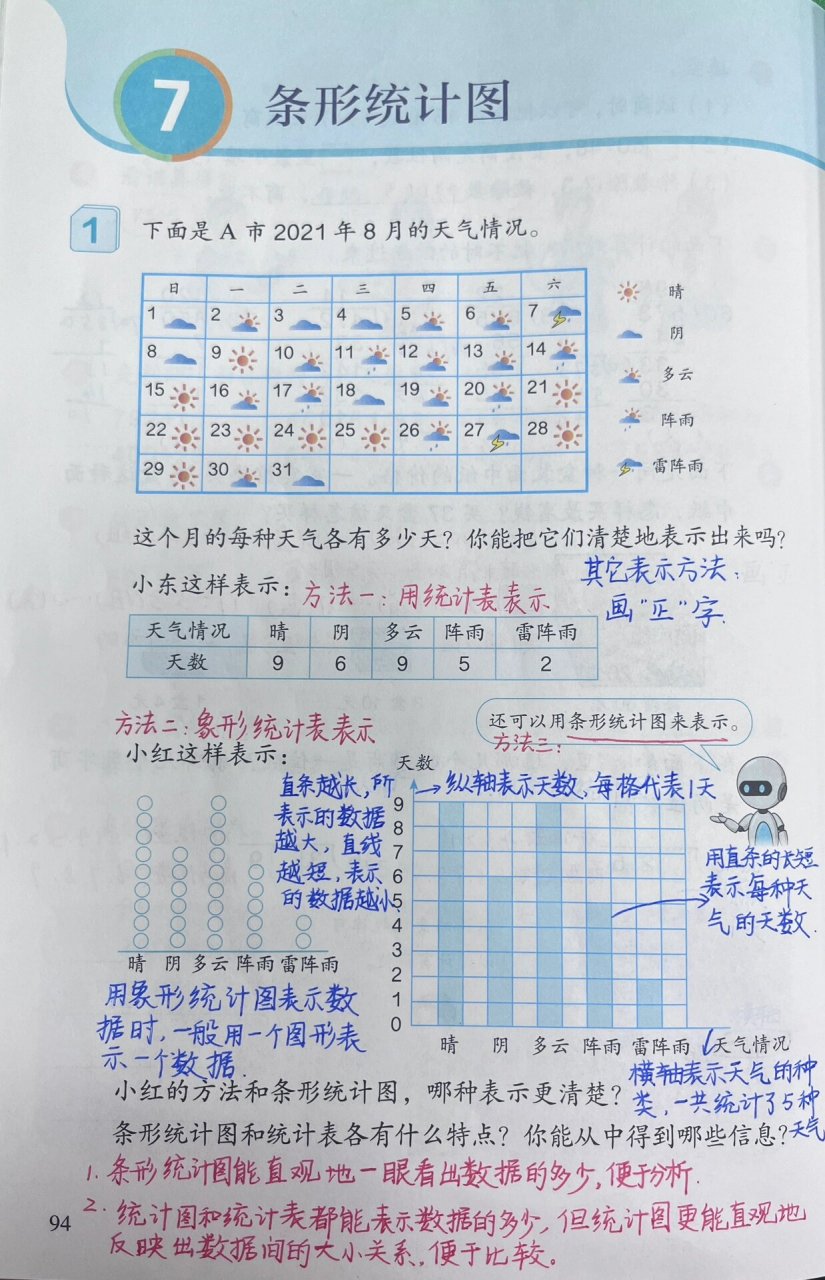 7 条形统计图
1 下面是 A 市 2021 年 8 月的天气情况。
日 一 二 三 四 五 六
1 2 3 4 5 6 7
8 9 10 11 12 13 14
15 16 17 18 19 20 21
22 23 24 25 26 27 28
29 30 31
晴
阴
多云
阵雨
雷阵雨
这个月的每种天气各有多少天？你能把它们清楚地表示出来吗？
小东这样表示：方法一：用统计表表示
其它表示方法：
画“正”字.
天气情况 晴 阴 多云 阵雨 雷阵雨
天数 9 6 9 5 2
方法二：象形统计表表示
小红这样表示：
还可以用条形统计图来表示。
方法三：
直条越长，所
表示的数据
越大，直线
越短，表示
的数据越小
晴 阴 多云 阵雨 雷阵雨
用象形统计图表示数
据时，一般用一个图形表
示一个数据.
天数
纵轴表示天数，每格代表1天
9
8
7
6
5
4
3
2
1
0
晴 阴 多云 阵雨 雷阵雨 天气情况
用直条的长短
表示每种天
气的天数.
横轴表示天气的种
类，一共统计了5种
天气
小红的方法和条形统计图，哪种表示更清楚？
条形统计图和统计表各有什么特点？你能从中得到哪些信息？
1. 条形统计图能直观地一眼看出数据的多少，便于分析.
2. 统计图和统计表都能表示数据的多少，但统计图更能直观地
反映出数据间的大小关系，便于比较。
94